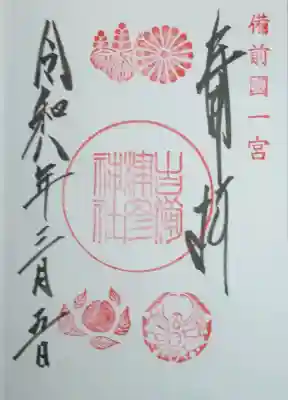 備前國一宮
奉拝
吉備津彦神社
令和八年三月五日